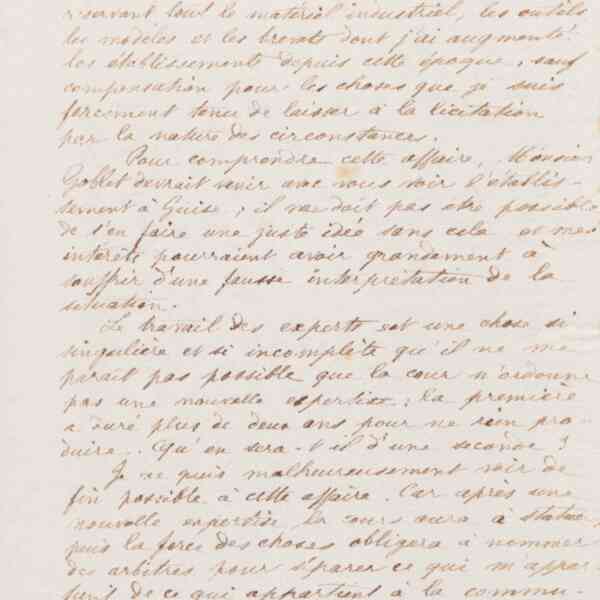 réservant tout le matériel industriel, les outils
les modèles et les brevets dont j'ai augmenté
les établissements depuis cette époque, sauf
compensation pour les choses que je suis
forcement tenu de laisser à la licitation
par la nature des circonstances.
Pour comprendre cette affaire, Monsieur
Goblet devrait venir avec vous voir l'établis-
sement à Guise ; il ne doit pas être possible
de s'en faire une juste idée sans cela et mes
intérêts pourraient avoir grandement à
souffrir d'une fausse interprétation de la
situation.
Le travail des experts est une chose si
singulière et si incomplète qu'il ne me
parait pas possible que la cour n'ordonne
pas une nouvelle expertise ; la première
a duré plus de deux ans pour ne rien pro-
duire. Qu'en sera-t-il d'une seconde ?
Je ne puis malheureusement voir de
fin possible à cette affaire. Car après une
nouvelle expertise la cour aura à statuer
puis la force des choses obligera à nommer
des arbitres pour séparer ce qui m'appar-
tient de ce qui appartient à la commu-